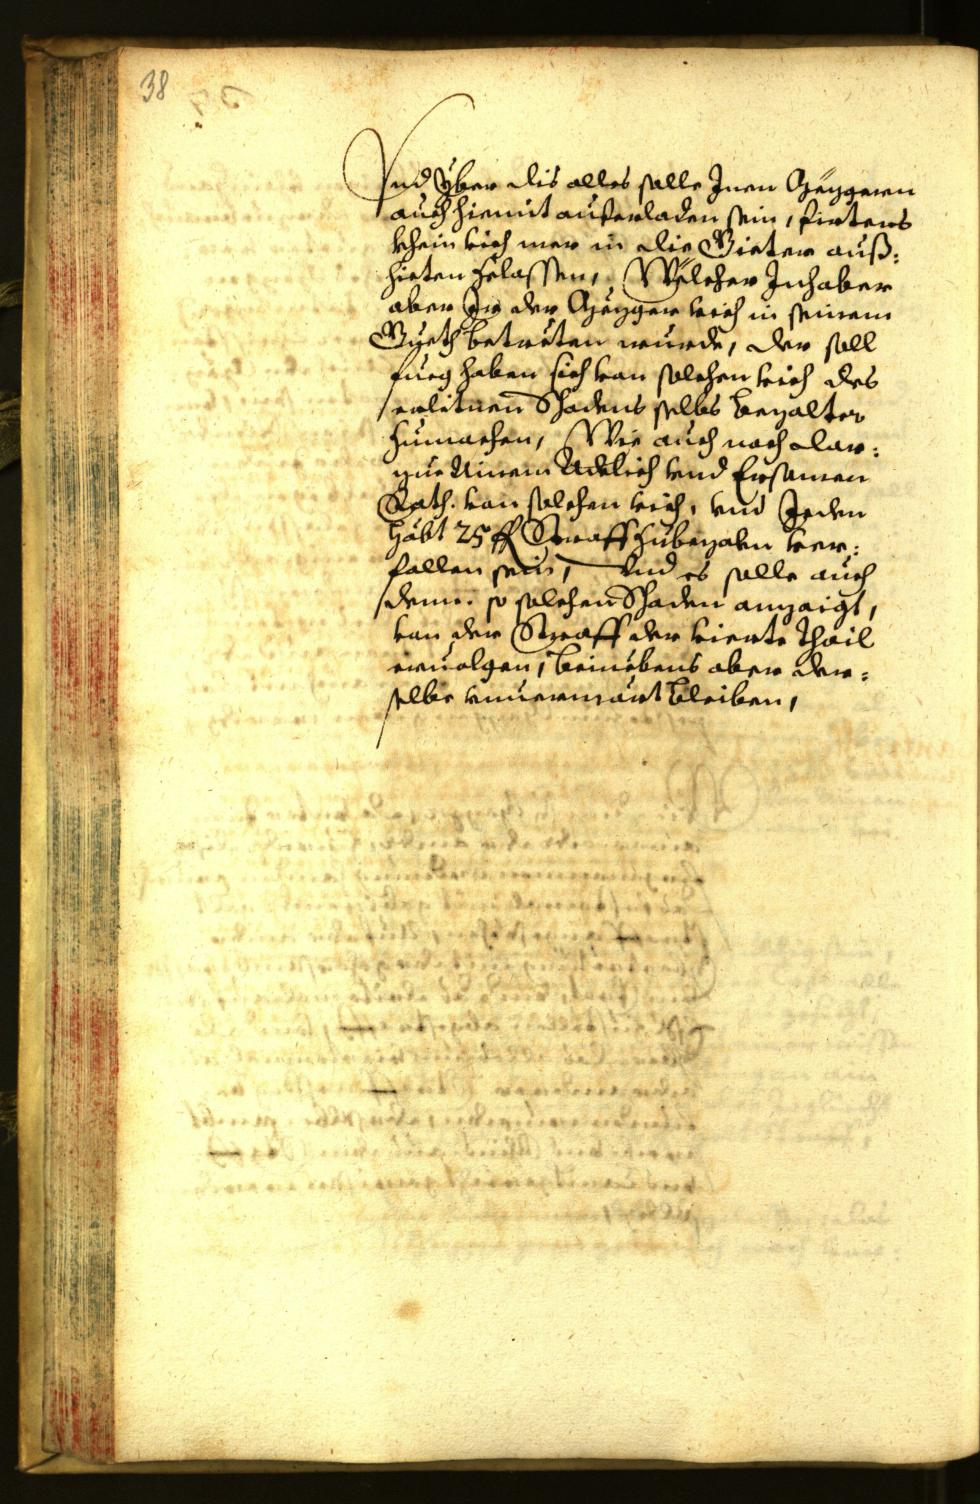 38
Vnd Yber dis alles solle Inen Gejgeren
auch hiemit auferladen sein, firters
khein vich mer in die Gieter auß:
hieten zelassen, Wölcher Inhaber
aber Ir der Gejger vich in seinem
Gueth betretten wurde, der soll
fueg haben sich von solchen vich des
erlitnen Schadens selbs bezalter
zumachen, Wie auch noch dar:
zue Ainem Adelich vnd Ersamen
Rath. von solchen vich, vnd Jeden
habt 25 fl Straff zubezaln ver:
fallen sein, Vnd es solle auch
deme so solchen Schaden anzaigt,
von der Straff der vierte Thail
ervolgen, beinebens aber der:
selbe vnuermärt bleiben,